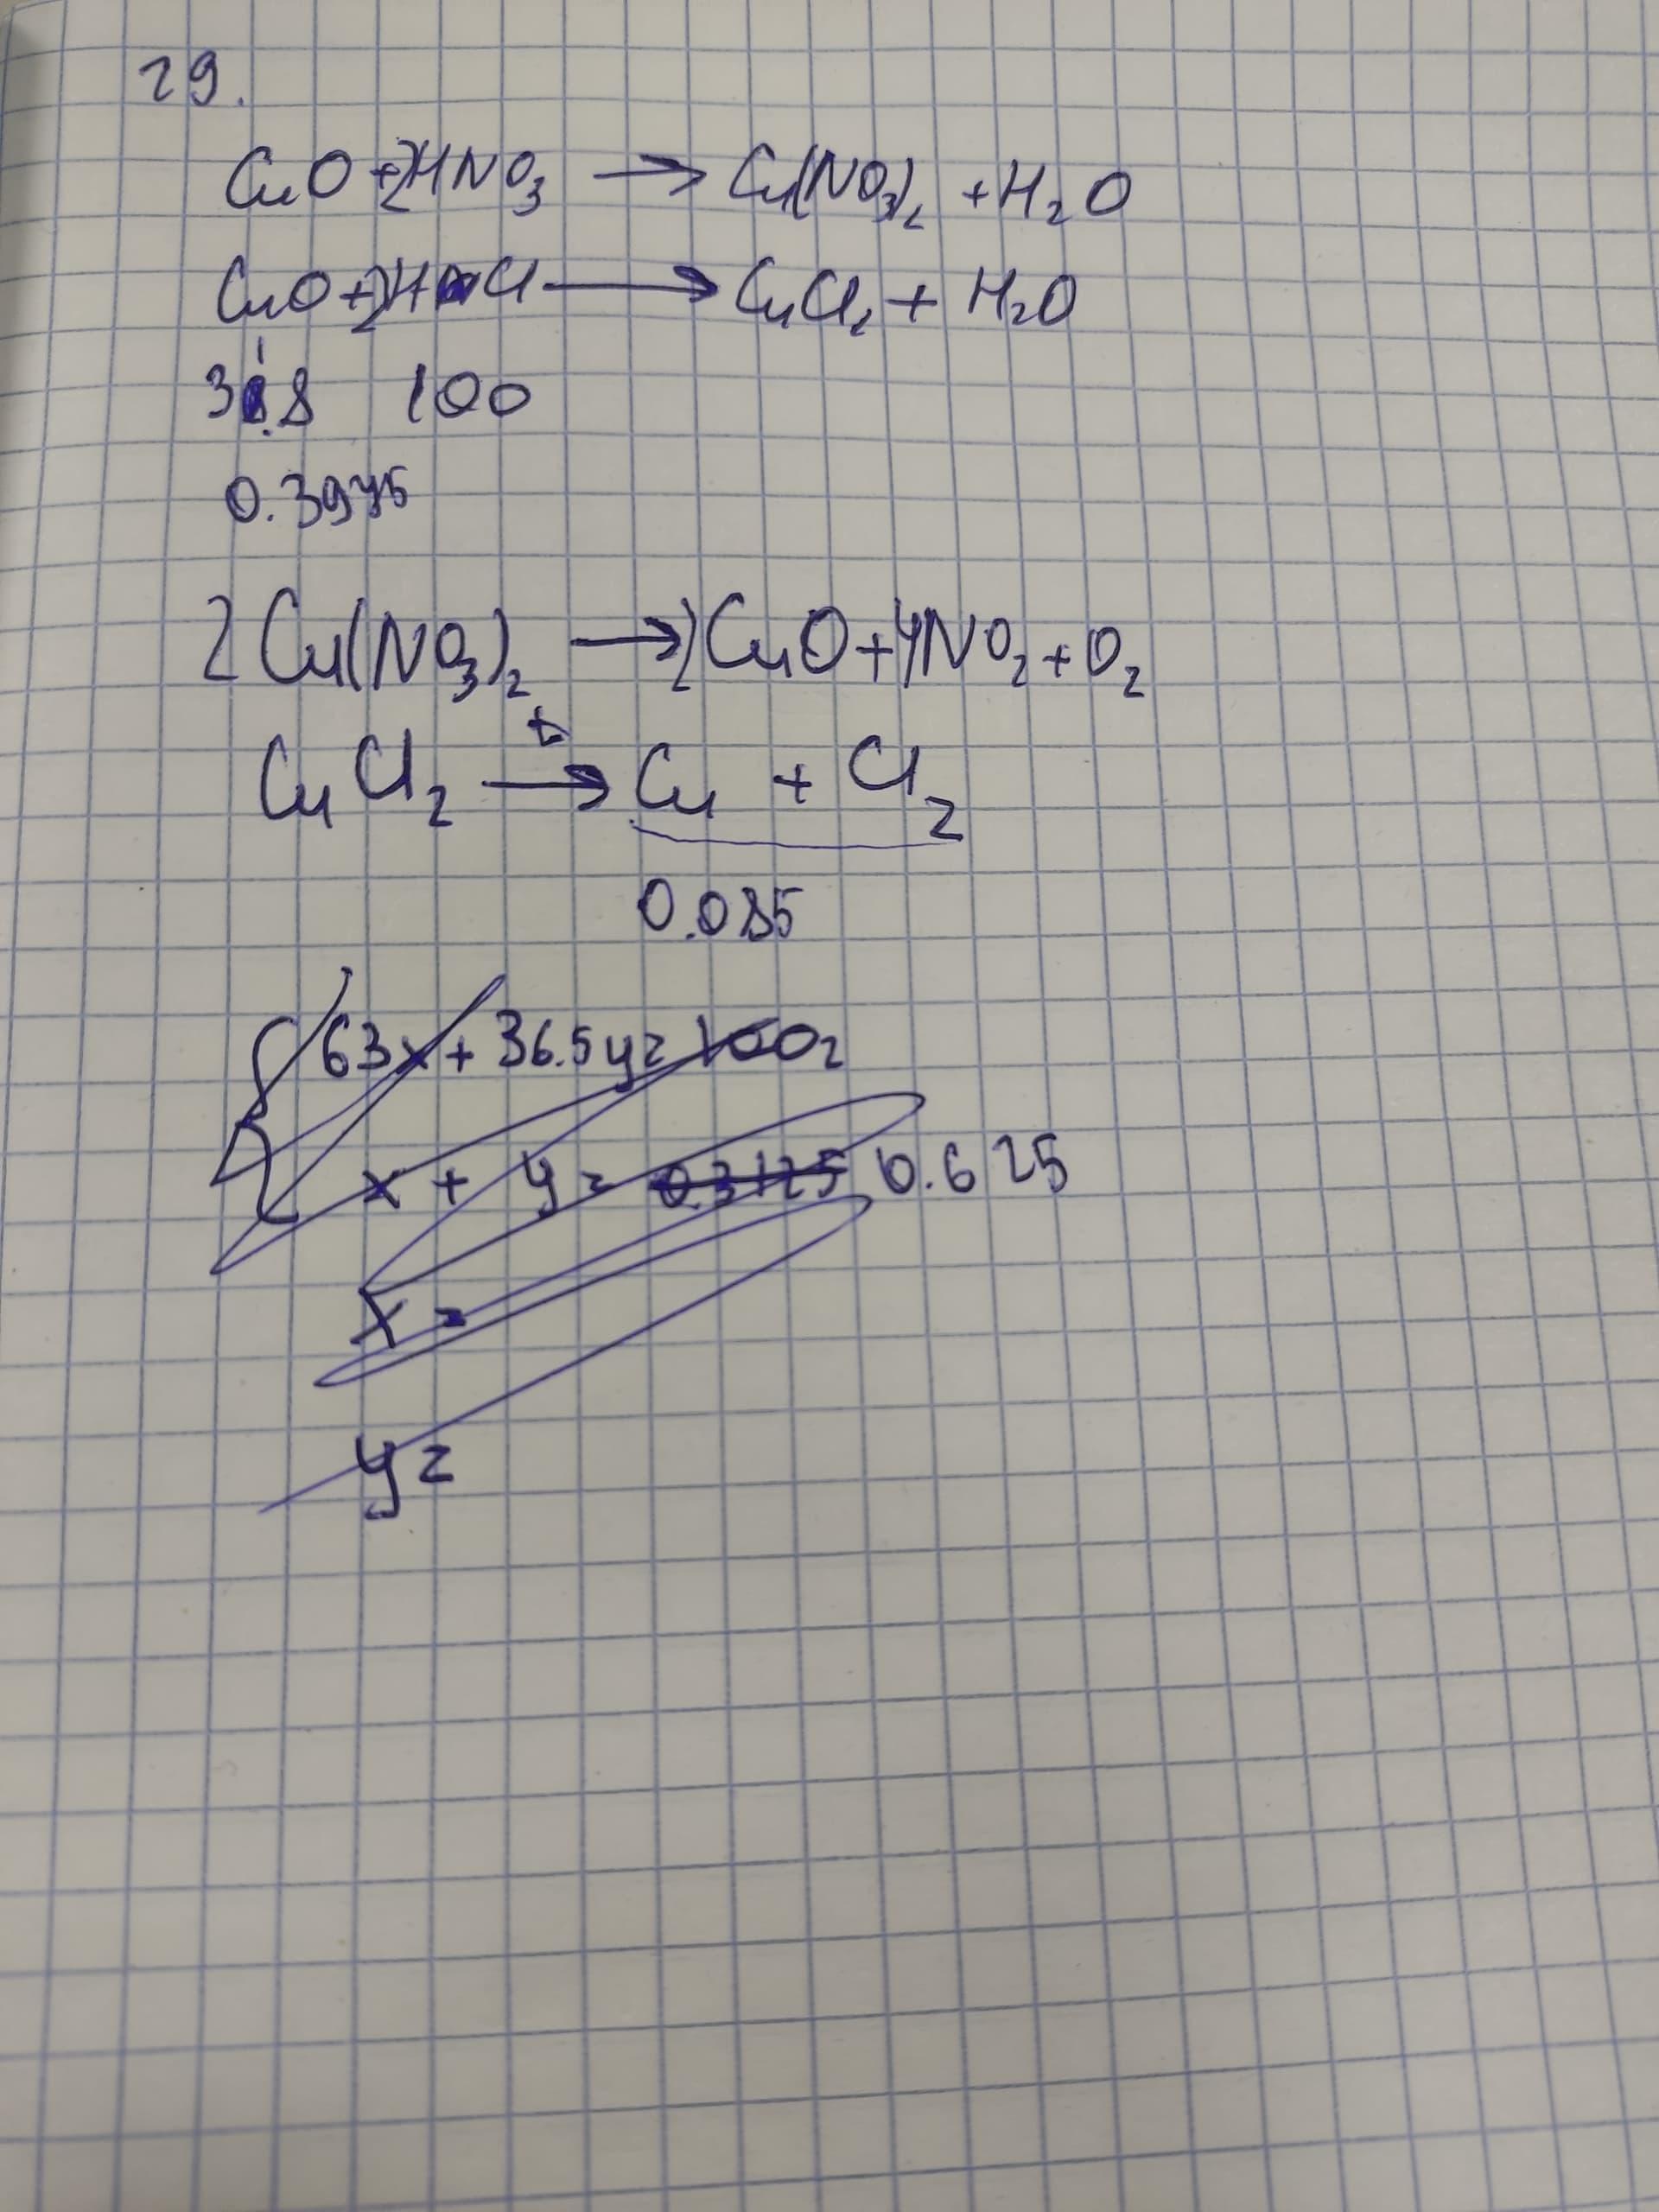 29.
CuO + 2HNO₃ → Cu(NO₃)₂ + H₂O
CuO + 2HCl → CuCl₂ + H₂O
31.8 100
0.3975
2Cu(NO₃)₂ → 2CuO + 4NO₂ + O₂
t
CuCl₂ → Cu + Cl₂
0.085
63x + 36.5y = 100
x + y = 0.3125 0.625
x =
y =